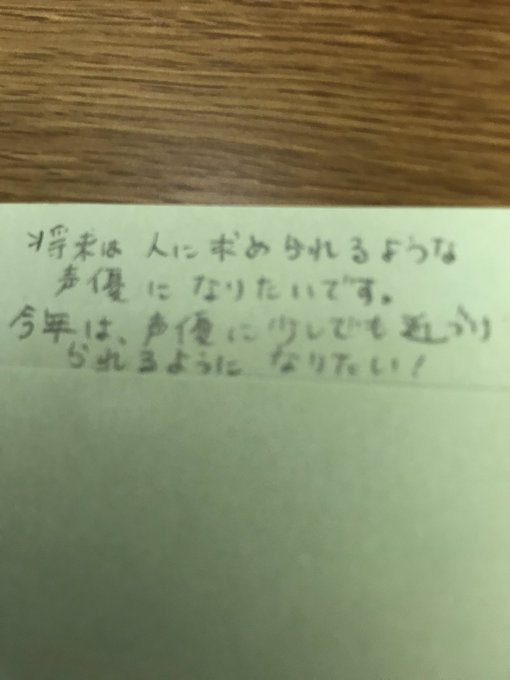 将来は 人に求められるような
声優 になりたいです。
今年は、声優に少しでも近づけ
られるように なりたい!